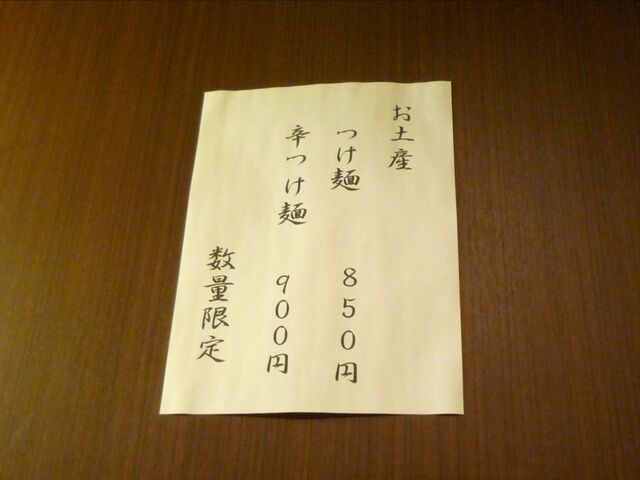 お土産
つけ麺 850円
辛つけ麺 900円
数量限定